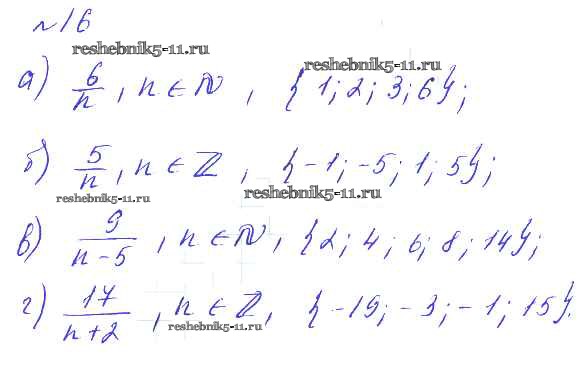 №16
reshebnik5-11.ru
reshebnik5-11.ru
а) 6/n, n ∈ ℕ, {1; 2; 3; 6};
б) 5/n, n ∈ ℤ, {-1; -5; 1; 5};
reshebnik5-11.ru
reshebnik5-11.ru
в) 9/(n-5), n ∈ ℕ, {2; 4; 6; 8; 14};
г) 17/(n+2), n ∈ ℤ, {-19; -3; -1; 15}.
reshebnik5-11.ru